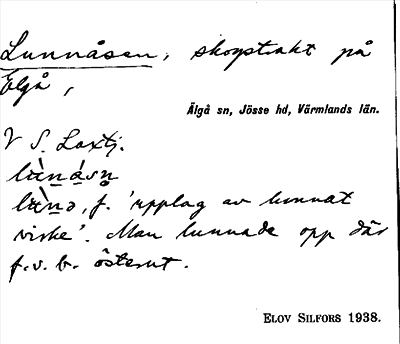 Lunnåsen, skogstrakt på
Elgå,
Älgå sn, Jösse hd, Värmlands län.
V S. Laxtj.
'upplag av lunnat
virke'. Man lunnade opp där
f.v.b. österut.
ELOV SILFORS 1938.